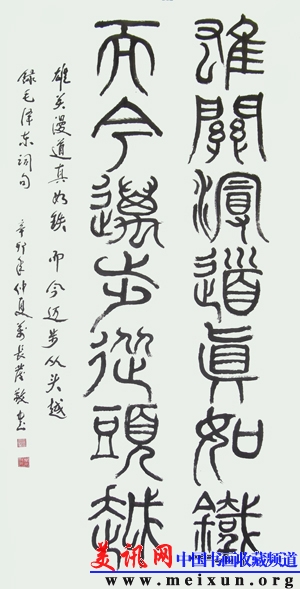 雄關漫道眞如鐵
而今邁步從頭越
雄关漫道真如鉄 而今迈步从头越
録毛泽东词句
辛卯年仲夏萬長
美讯网 中国书画收藏频道
www.meixun.org